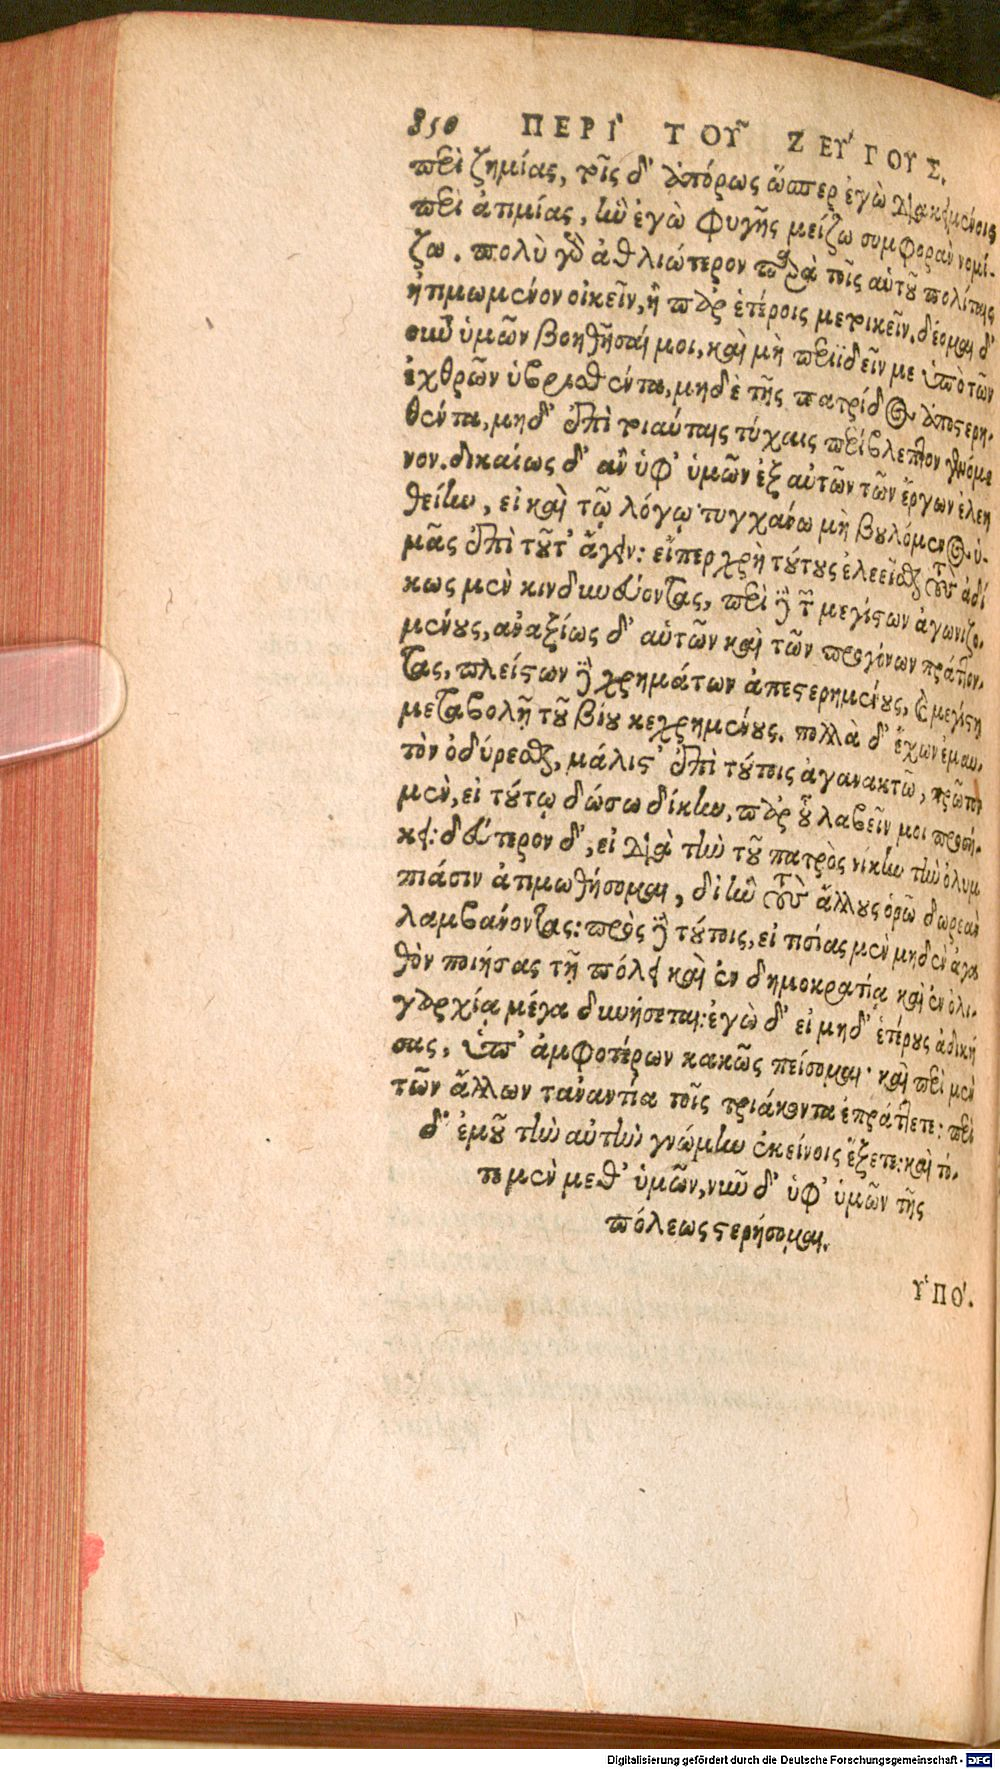 350 ΠΕΡΙ` ΤΟΥ͂ ΖΕΥ´ΓΟΥΣ.
περὶ ζημίας, τοῖς δ' ἀπόρως ὥσπερ ἐγὼ διακειμένοις
περὶ ἀτιμίας, ἣν ἐγὼ φυγῆς μείζω συμφορὰν νομί-
ζω. πολὺ γὰρ ἀθλιώτερον παρὰ τοῖς αὑτοῦ πολίταις
ἠτιμωμένον οἰκεῖν, ἢ παρ' ἑτέροις μετοικεῖν. δέομαι δ'
οὖν ὑμῶν βοηθῆσαί μοι, καὶ μὴ περιϊδεῖν με ὑπὸ τῶν
ἐχθρῶν ὑβρισθέντα, μηδὲ τῆς πατρίδος ἀποστερη-
θέντα, μηδ' ἐπὶ τοιαύταις τύχαις περίβλεπτον γενόμε
νον. δικαίως δ' ἂν ὑφ' ὑμῶν ἐξ αὐτῶν τῶν ἔργων ἐλεη
θείην, εἰ καὶ τῷ λόγῳ τυγχάνω μὴ βουλόμενος ὑ-
μᾶς ἐπὶ τοῦτ' ἄγειν: εἴπερ χρὴ τούτους ἐλεεῖσθαι τοὺς ἀδί
κως μὲν κινδυνεύοντας, περὶ δὲ τῶν μεγίστων ἀγωνιζο-
μένους, ἀναξίως δ' αὑτῶν καὶ τῶν προγόνων πράττον-
τας, πλείστων δὲ χρημάτων ἀπεστερημένους, καὶ μεγίστῃ
μεταβολῇ τοῦ βίου κεχρημένους. πολλὰ δ' ἔχων ἐμαυ-
τὸν ὀδύρεσθαι, μάλιστ' ἐπὶ τούτοις ἀγανακτῶ, πρῶτον
μὲν, εἰ τούτῳ δώσω δίκην, παρ' οὗ λαβεῖν μοι προσή-
κει: δεύτερον δ', εἰ διὰ τὴν τοῦ πατρὸς νίκην τὴν ὀλυμ
πιάσιν ἀτιμωθήσομαι, δι' ἣν τοὺς ἄλλους ὁρῶ δωρεὰν
λαμβάνοντας: πρὸς δὲ τούτοις, εἰ τισίας μὲν μηδὲν ἀγα
θὸν ποιήσας τῇ πόλει καὶ ἐν δημοκρατίᾳ καὶ ἐν ὀλι-
γαρχίᾳ μέγα δυνήσεται: ἐγὼ δ' εἰ μηδ' ἑτέρους ἀδική
σας, ὑπ' ἀμφοτέρων κακῶς πείσομαι· καὶ περὶ μὲν
τῶν ἄλλων τἀναντία τοῖς τριάκοντα ἐπράττετε: περὶ
δ' ἐμοῦ τὴν αὐτὴν γνώμην ἐκείνοις ἕξετε: καὶ τό-
τε μὲν μεθ' ὑμῶν, νῦν δ' ὑφ' ὑμῶν τῆς
πόλεως στερήσομαι.
ΥΠΟ´.
Digitalisierung gefördert durch die Deutsche Forschungsgemeinschaft - DFG